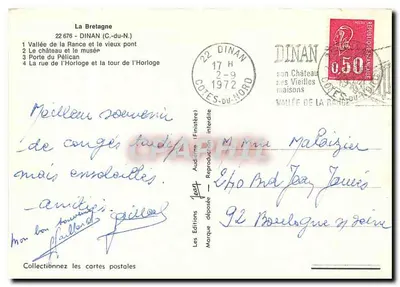 La Bretagne
22 676 - DINAN (C.-du-N.)
1 Vallée de la Rance et le vieux pont
2 Le château et le musée
3 Porte du Pélican
4 La rue de l'Horloge et la tour de l'Horloge
Meilleur souvenir
de congés tardifs
mais ensoleillés.
amitiés
Mon bon souvenir
Collectionnez les cartes postales
Les Editions Jack Audierne (Finistère)
Marque déposée - Reproduction interdite
22 DINAN
17 H
2-9
1972
COTES-DU-NORD
DINAN
son Château
ses Vieilles
maisons
VALLÉE DE LA RANCE
0,50
M et Mme
240 Bd Jean Jaurès
92 Boulogne s/ Seine